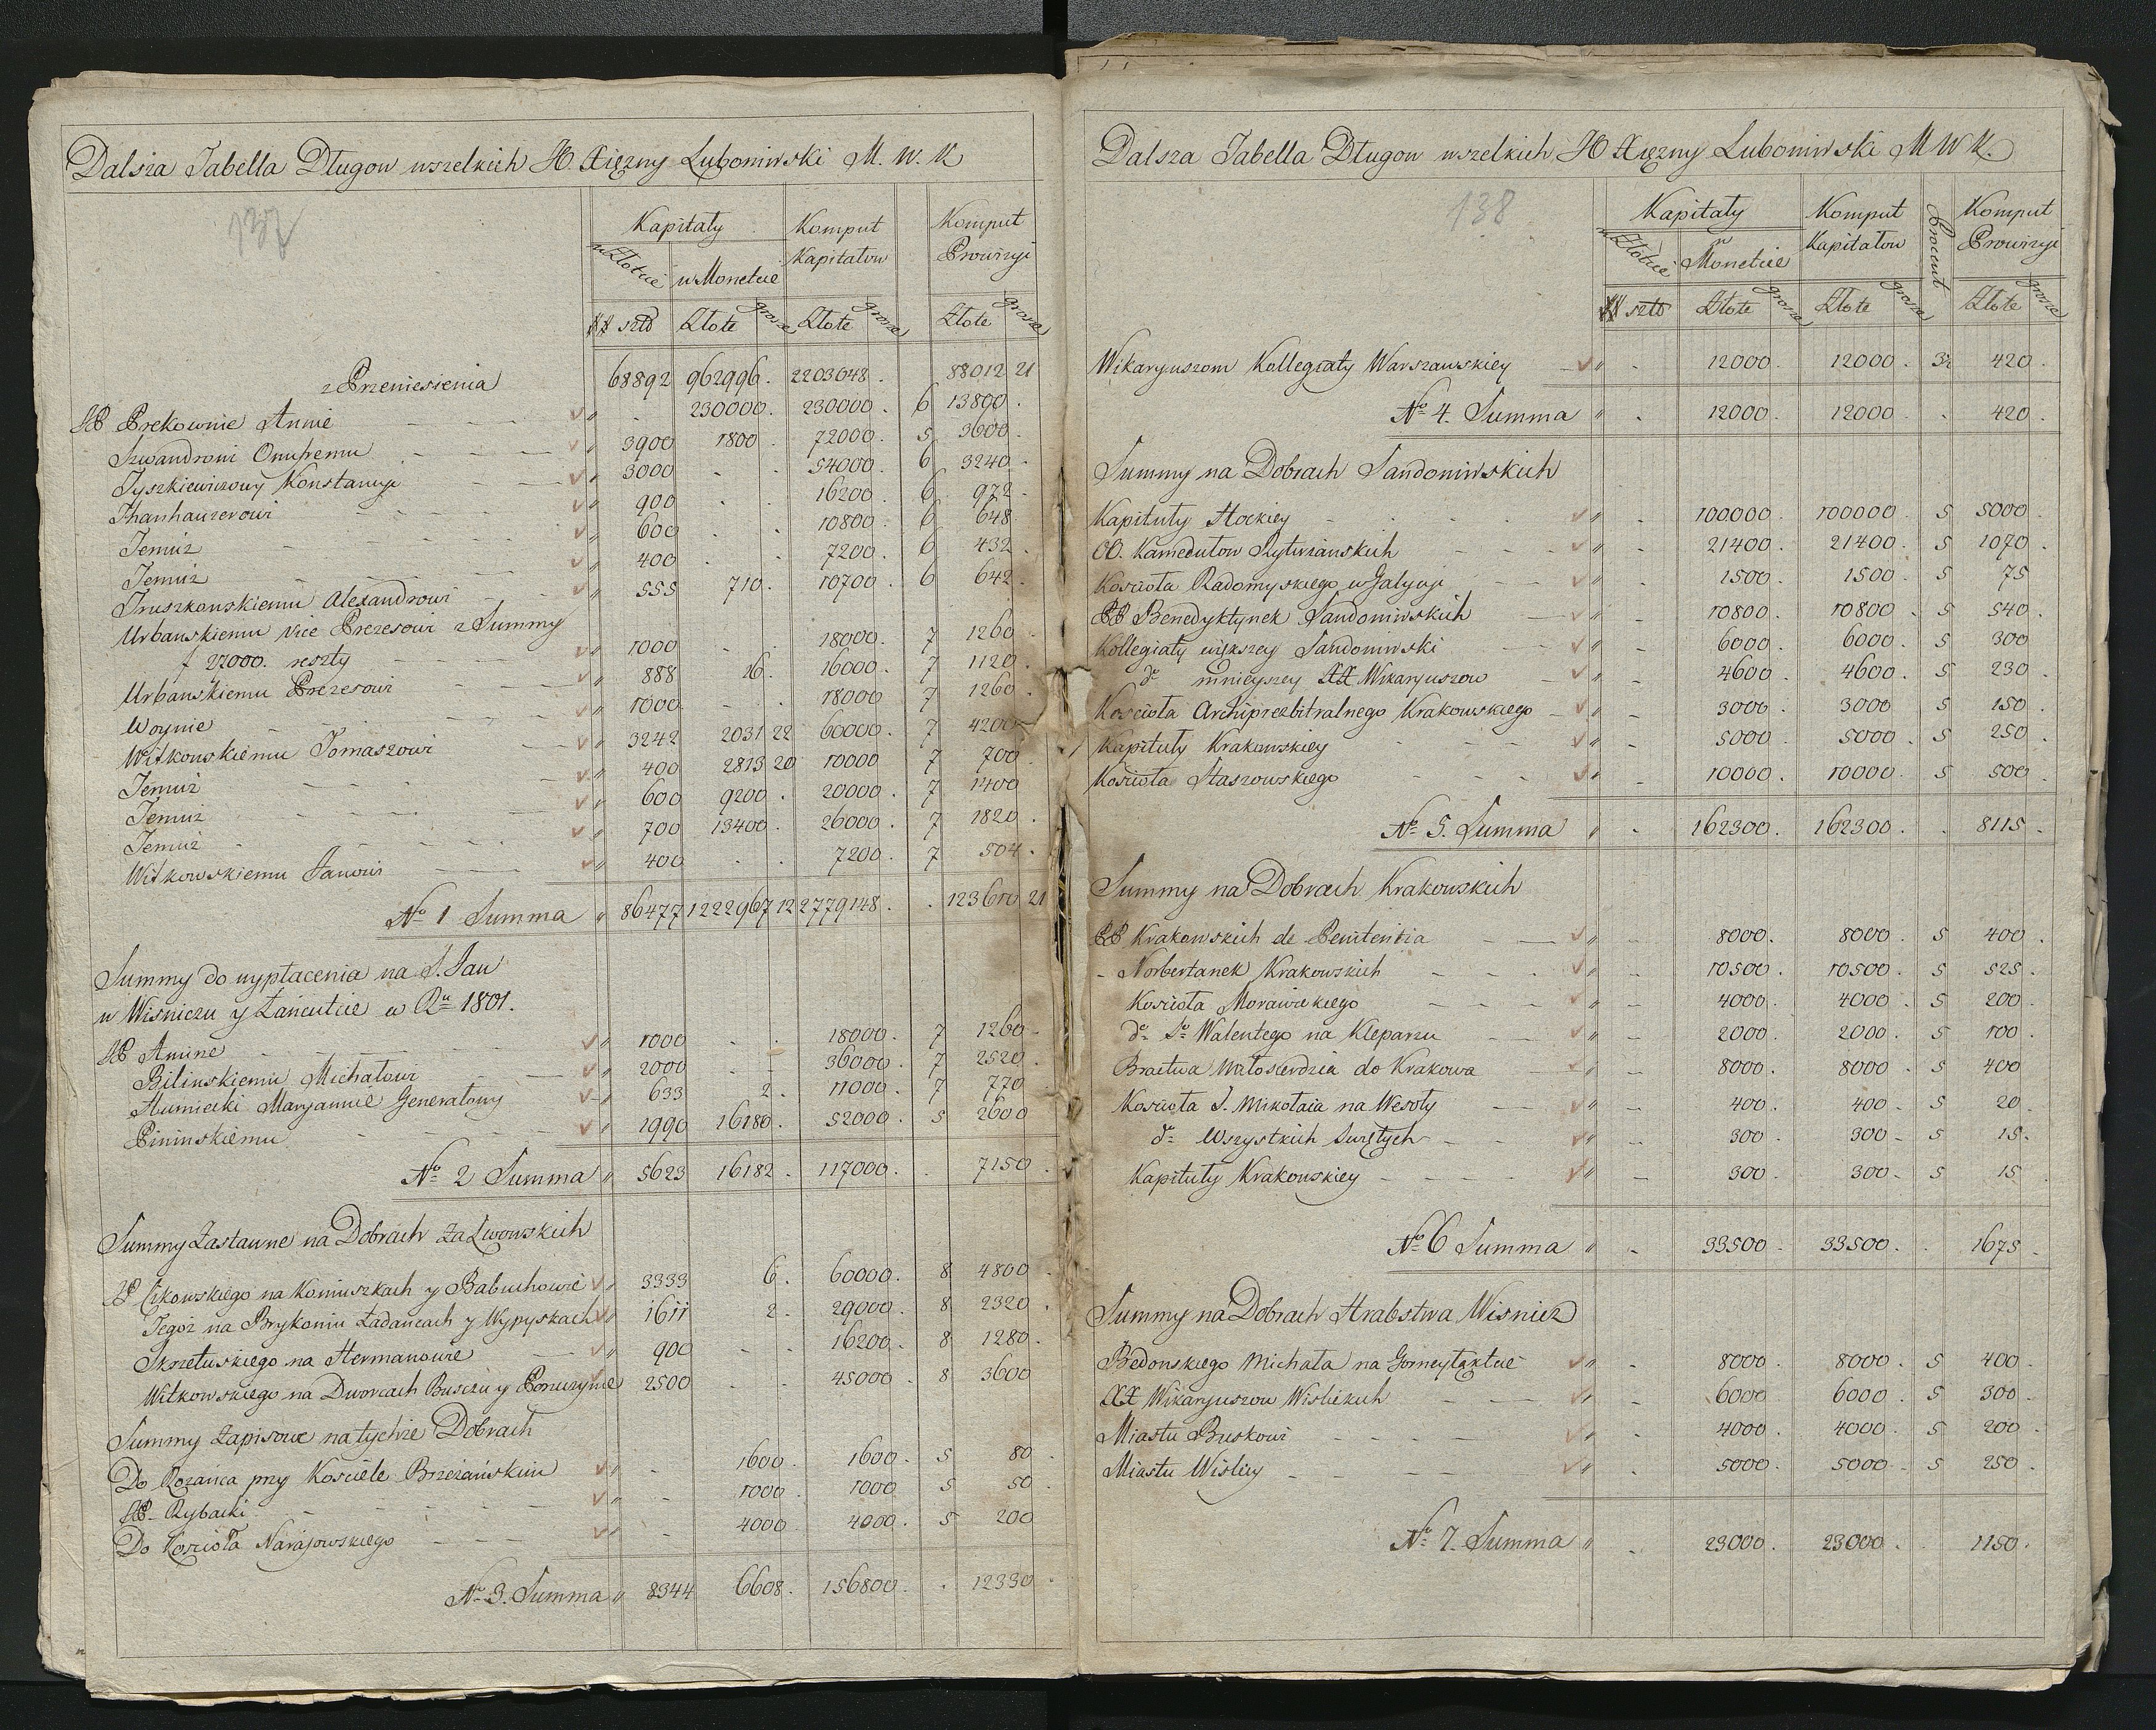 Dalsza Tabella Długow wszelkich Xiężny Lubomirski M. W. K.
137
Kapitały Komput Komput
w Złocie w Monecie Kapitałow Prowizyi
## szto Złote grosze Złote grosze Złote grosze
z Przeniesienia 68892 962996. 2203048. 88012 21
Prekownie Annie " . 230000. 230000. 6 13800.
Szwandroni Onufremu " 3900 1800. 72000. 5 3600.
Tyszkiewiczowy Konstancyi " 3000 - . 54000. 6 3240.
Thanhauzerowi " 900 . . 16200. 6 972.
Temuż " 600 . . 10800. 6 648.
Temuż " 400 . . 7200. 6 432.
Truszkowskiemu Alexandrowi " 555 710. 10700. 6 642.
Urbanskiemu Vice Prezesowi z Summy
f 27000. reszty " 1000 - . 18000. 7 1260
Urbanskiemu Prezesowi " 888 16. 16000. 7 1120.
Woynie " 1000 - . 18000 7 1260.
Witkowskiemu Tomaszowi " 3242 2031 22 60000. 7 4200
Temuż " 400 2813 20 10000 7 700
Temuż " 600 9200. 20000. 7 1400
Temuż " 700 13400. 26000. 7 1820.
Witkowskiemu Janowi " 400 . . 7200. 7 504.
No 1 Summa " 86477 1222967 12 2779148. . 123610 21
Summy do wypłacenia na S. Jan
w Wisniczu y Łańcucie w Ru 1801.
Aminę " 1000 . . 18000. 7 1260
Bilinskiemu Michałowi " 2000 - - 36000. 7 2520.
Humiecki Maryannie Generałowy " 633 2. 11000. 7 770
Pininskiemu " 1990 16180. 52000. 5 2600
No 2 Summa " 5623 16182. 117000. . 7150.
Summy Zastawne na Dobrach za Lwowskich
Cikowskiego na Koniuszkach y Babuchowie " 3333 6. 60000. 8 4800
Tegoż na Brykoniu Ładańcach y Wypyskach " 1611 2. 29000. 8 2320.
Skrzetuskiego na Hermanowie " 900 - - 16200. 8 1280.
Witkowskiego na Dworcach Busczu y Pomurzynie 2500 . . 45000. 8 3600
Summy Zapisowe na tychże Dobrach
Do Rożańca przy Kościele Brzeżańskim " - 1600. 1600. 5 80
Rybacki " - 1000. 1000 5 50
Do Kościoła Narajowskiego " - 4000 4000. 5 200
No 3. Summa " 8344 6608. 156800. . 12330
Dalsza Tabella Długow wszelkich Xiężny Lubomirski M W K.
138
Kapitały Komput Procent Komput
w Złocie w Monecie Kapitałow Prowizyi
## szto Złote grosze Złote grosze Złote grosze
Wikaryuszom Kollegiaty Warszawskiey " . 12000. 12000. 3½ 420.
No 4. Summa " . 12000. 12000. . 420.
Summy na Dobrach Sandomirskich
Kapituły Płockiey " - 100000. 100000. 5 5000.
OO. Kamedułow Rytwianskich " - 21400. 21400. 5 1070.
Kościoła Radomyskiego w Galycyi " - 1500. 1500. 5 75
PP Benedyktynek Sandomirskich " - 10800. 10800. 5 540.
Kollegiaty większey Sandomirski " - 6000. 6000. 5 300
do mnieyszey XX Wikaryuszow " - 4600. 4600. 5 230
Kościoła Archiprezbitralnego Krakowskiego " - 3000. 3000 5 150.
Kapituły Krakowskiey " - 5000. 5000. 5 250
Kościoła Staszowskiego " - 10000. 10000. 5 500
No 5. Summa " . 162300. 162300. . 8115.
Summy na Dobrach Krakowskich
PP Krakowskich de Penitentia " - 8000. 8000. 5 400.
- Norbertanek Krakowskich " - 10500. 10500. 5 525.
Kościoła Morawickiego " - 4000. 4000. 5 200.
do So Walentego na Kleparzu " - 2000. 2000. 5 100.
Bractwa Miłosierdzia do Krakowa " - 8000. 8000. 5 400
Kościoła S. Mikołaia na Wesoły " - 400. 400. 5 20.
do Wszystkich Swiętych " - 300. 300. 5 15.
Kapituły Krakowskiey " - 300. 300. 5 15
No 6 Summa " - 33500. 33500. . 1675.
Summy na Dobrach Hrabstwa Wisnicz
Bedonskiego Michała na " . 8000. 8000. 5 400.
XX Wikaryuszow Wislickich " - 6000. 6000. 5 300.
Miastu Buskowi " . 4000. 4000. 5 200.
Miastu Wislicy " . 5000. 5000. 5 250.
No 7. Summa " . 23000. 23000. . 1150.